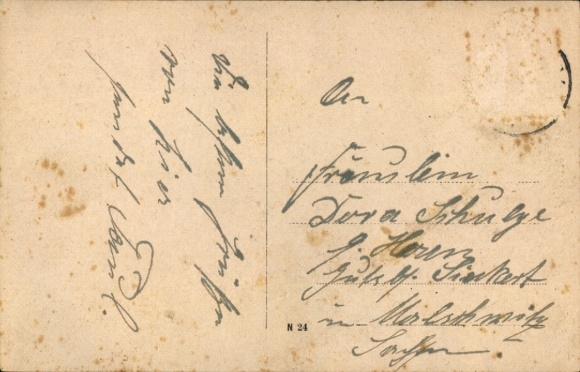 Die besten Grüße
von hier
sendet
An
Fräulein
Dora Schulze
Herrn
Gutsb. Sickert
in Malschwitz
Sachsen
N 24